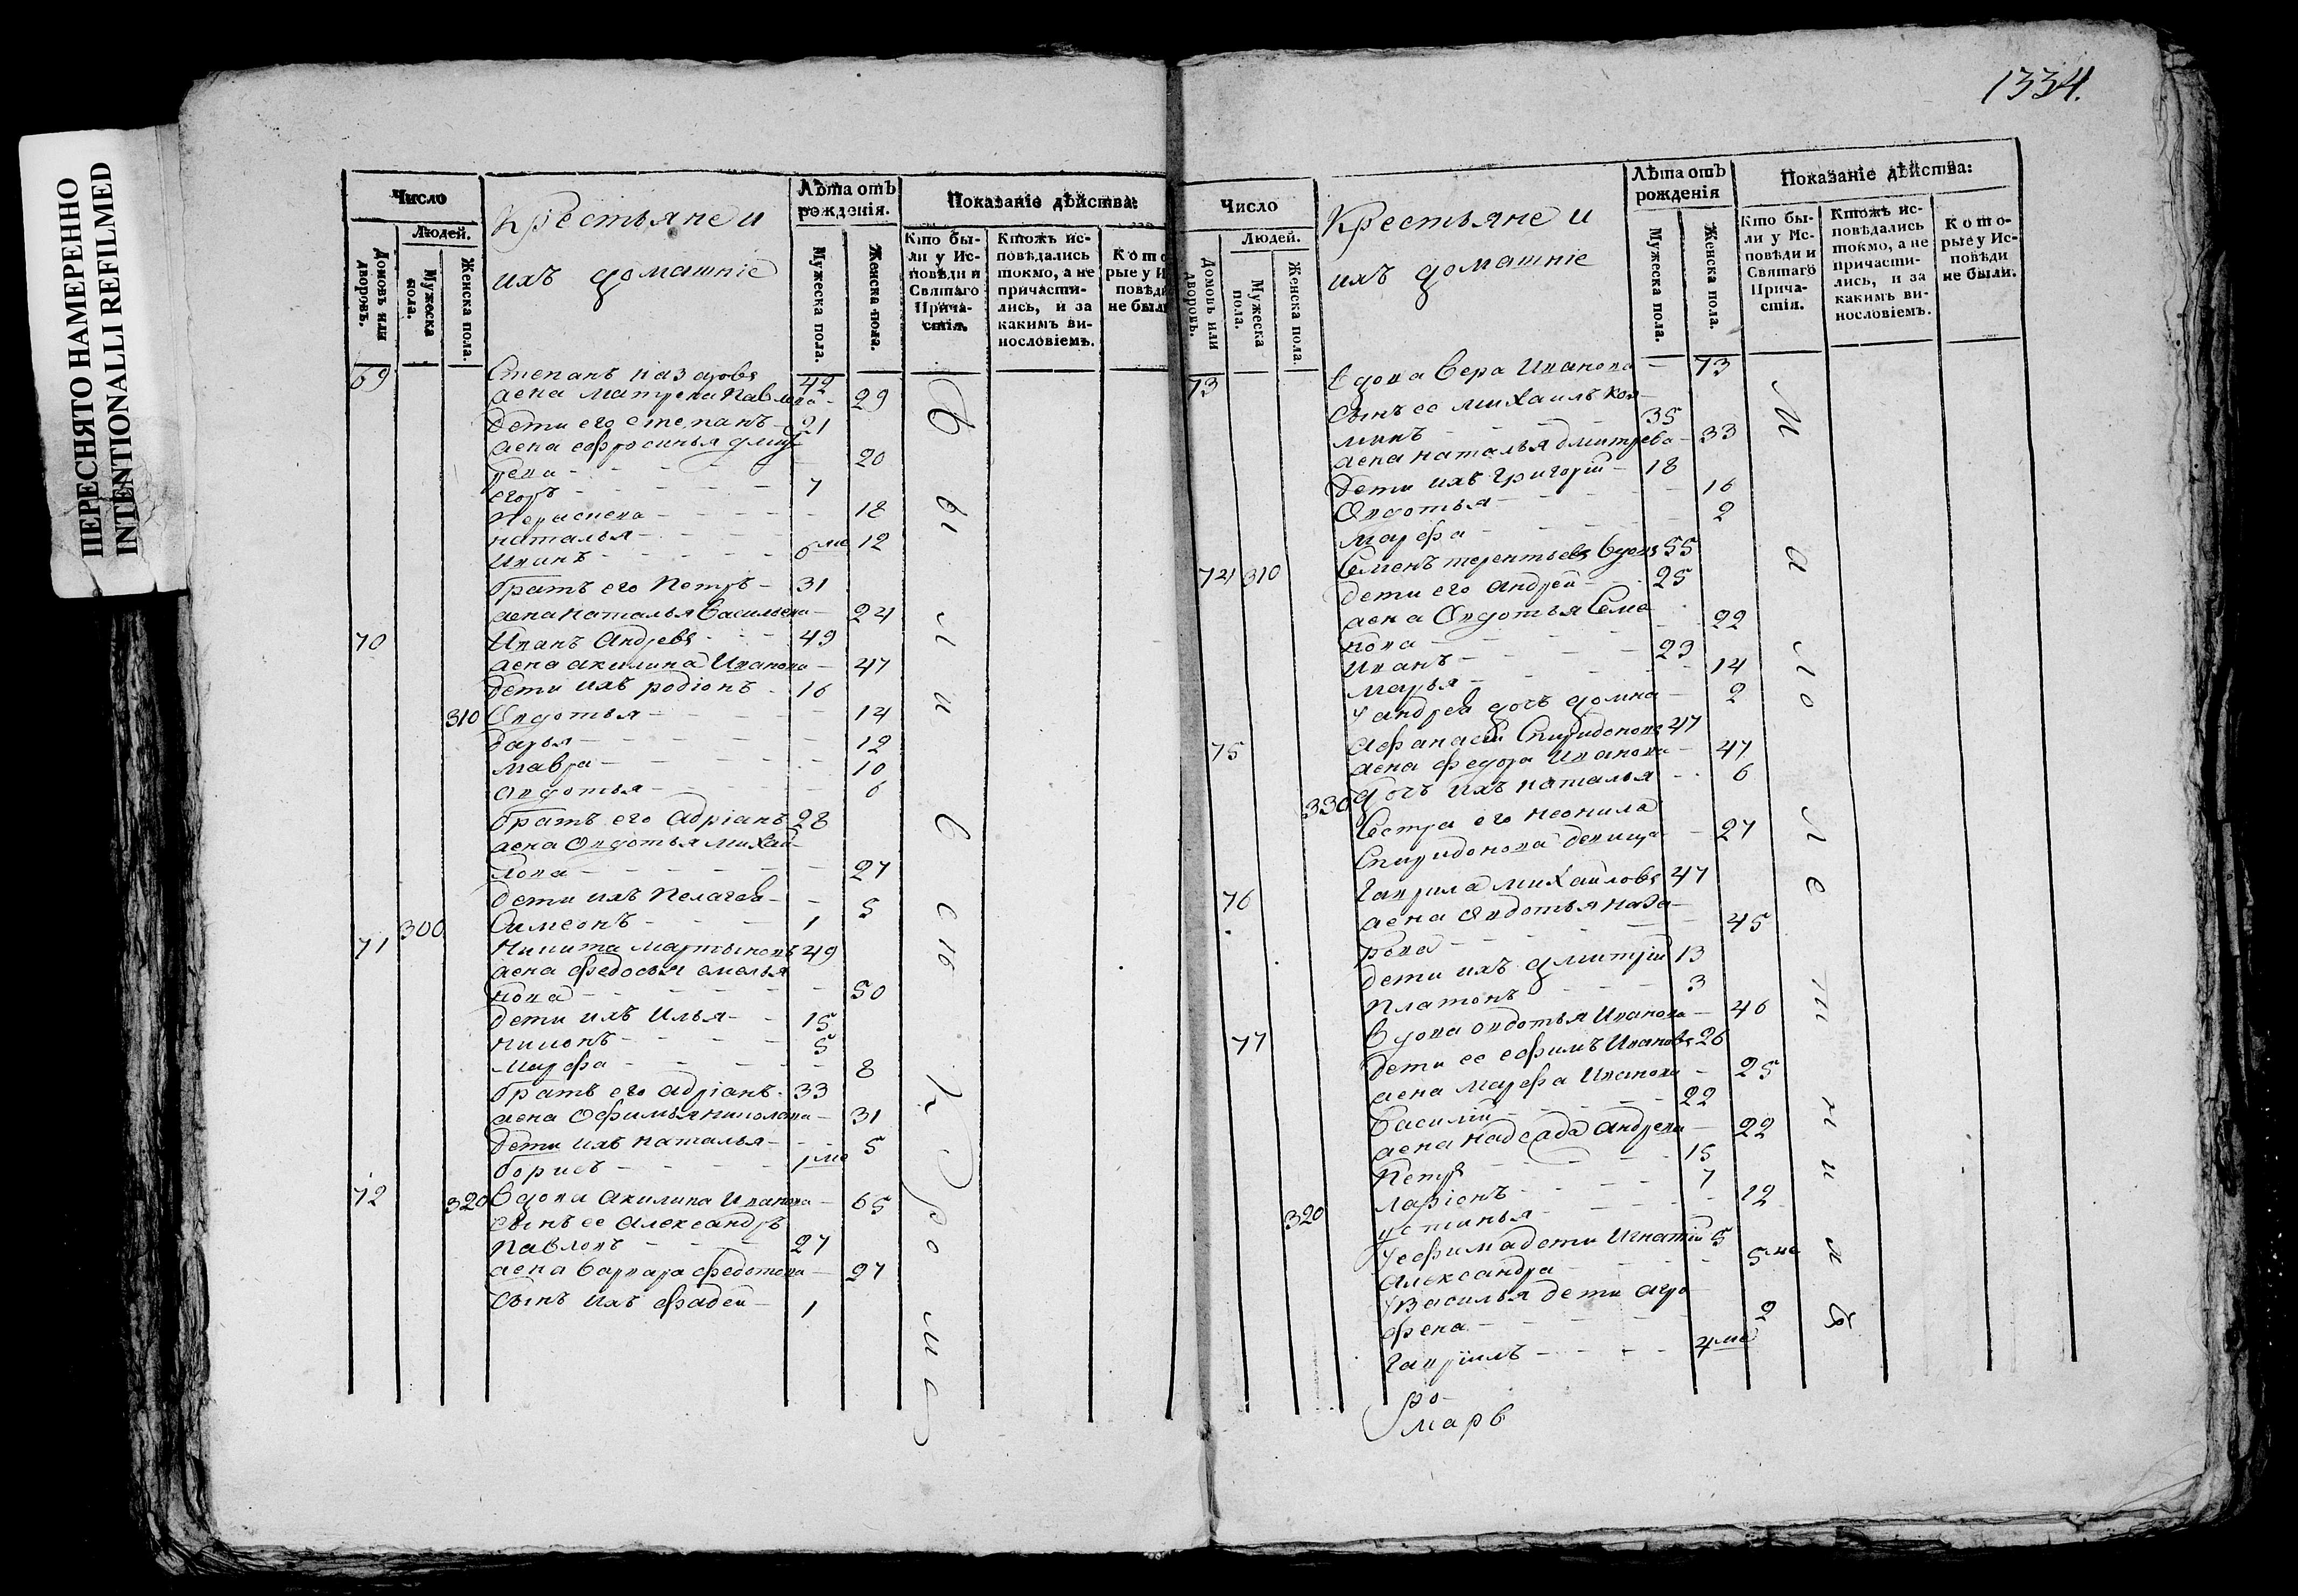 ПЕРЕСНЯТО НАМЕРЕННО
INTENTIONALLI REFILMED
Число
Людей.
Домовъ или дворовъ.
Мужеска пола.
Женска пола.
Крестьяне и
ихъ домашніе
Лѣта отъ рожденія.
Мужеска пола.
Женска пола.
Показаніе дѣйства:
Кто бы-
ли у Ис-
повѣди и
Святаго
Прича-
стія.
Ктожъ ис-
повѣдались
токмо, а не
причасти-
лись, и за
какимъ ви-
нословіемъ.
Кото
рые у И
повѣди
не были
69 Степанъ Назаровъ 42
жена Матрена Павлова - 29
Дети его Степанъ - 21
жена Ефросинья Дмит
рева - 20
Егоръ - 7
Параскева - 18
Наталья - 12
Иванъ - 6 ме
братъ его Петръ - 31
жена Наталья Васильева - 24
70 Иванъ Андревъ - 49
жена Акилина Иванова - 47
Дети ихъ Родіонъ - 16
310 Овдотья - 14
Дарья - 12
Мавра - 10
Овдотья - 6
братъ его Адріанъ 28
жена Овдотья Михай-
лова - 27
Дети ихъ Пелагея - 5
300 Симеонъ - 1
71 Никита Мартыновъ 49
жена Федосья Емелья
нова - 50
Дети ихъ Илья - 15
Никонъ - 5
Марфа - 8
братъ его Адріанъ - 33
жена Офимья Николава - 31
Дети ихъ Наталья - 5
Борисъ - 1 ме
72 320 Вдова Акилина Иванова - 65
Сынъ ее Александръ
Павловъ - 27
жена Варвара Федотова - 27
Сынъ ихъ Фадей - 1
Были
всю
1334.
Число
Людей.
Домовъ или дворовъ.
Мужеска пола.
Женска пола.
Крестьяне и
ихъ домашніе
Лѣта отъ рожденія
Мужеска пола.
Женска пола.
Показаніе дѣйства:
Кто бы-
ли у Ис-
повѣди и
Святаго
Прича-
стія.
Ктожъ ис-
повѣдались
токмо, а не
причасти-
лись, и за
какимъ ви-
нословіемъ.
Кото-
рые у Ис-
повѣди
не были.
73 Вдова Вера Иванова - 73
Сынъ ее Михаилъ
35
жена Наталья Дмитрева - 33
Дети ихъ Григорій - 18
Овдотья - 16
Марфа - 2
74 310 Семенъ Терентьевъ Вдовъ 55
Дети его Андрей - 25
жена Овдотья Семе
нова - 22
Иванъ - 23
Марья - 14
У Андрея дочь Домна - 2
75 Афанасій Спиридоновъ 47
жена Федора Иванова - 47
330 Дочь ихъ Наталья - 6
Сестра его Неонила
Спиридонова девица - 27
76 Гаврила Михайловъ 47
жена Овдотья Наза-
рова - 45
Дети ихъ Дмитрій 13
Платонъ 3
77 Вдова Овдотья Иванова - 46
Дети ее Ефимъ Ивановъ 26
жена Марфа Иванова - 25
Василій - 22
жена Надежда Андрева - 22
Петръ - 15
Ларіонъ - 7
320 Устинья - 12
У Ефима дети Игнатій 5
Александра - 5 ме
У Василья дети Агро
фена - 2
Гавріилъ - 4 ме
Малолетнихъ